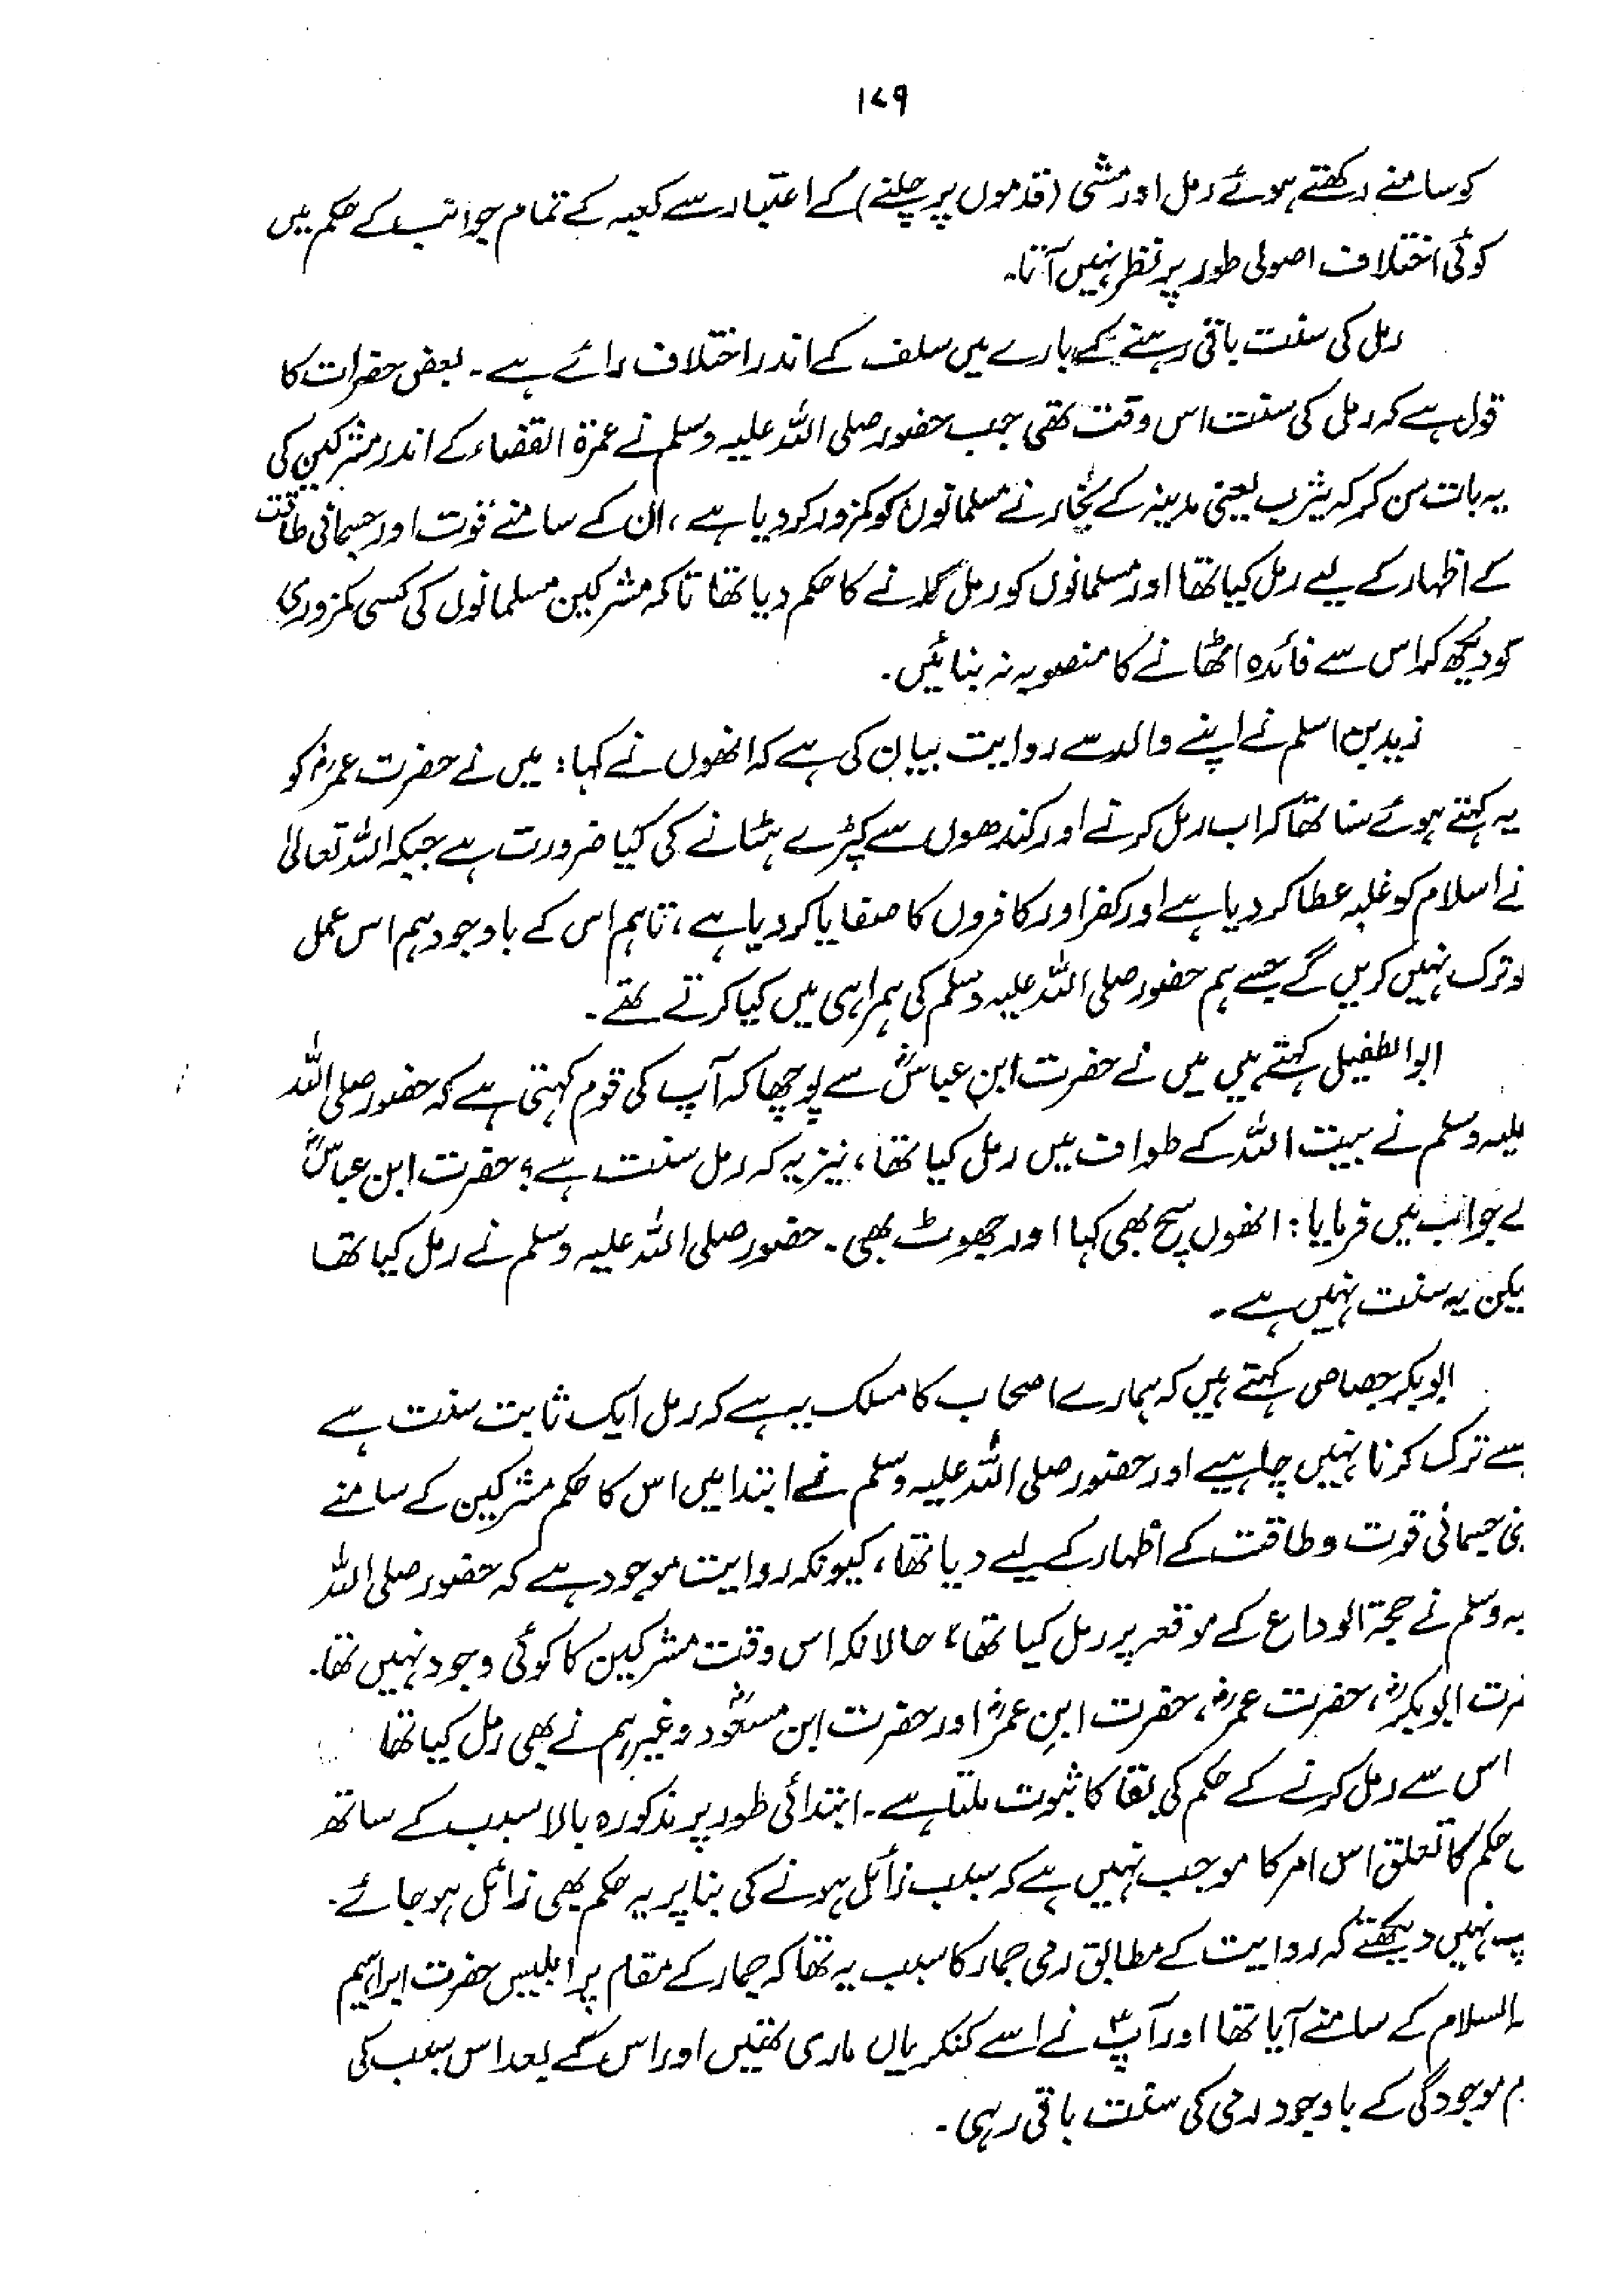 ۱۷۹
کو سامنے رکھتے ہوئے رمل اور مشی (قدموں پر چلنے) کے اعتبار سے کعبہ کے تمام جوانب کے حکم میں
کوئی اختلاف اصولی طور پر نظر نہیں آتا۔
رمل کی سنت باقی رہنے کے بارے میں سلف کے اندر اختلاف رائے ہے۔ بعض حضرات کا
قول ہے کہ رمل کی سنت اس وقت تھی جب حضور صلی اللہ علیہ وسلم نے عمرۃ القضاء کے اندر مشرکین کی
یہ بات سن کر کہ یثرب یعنی مدینہ کے بخار نے مسلمانوں کو کمزور کر دیا ہے، ان کے سامنے قوت اور جسمانی طاقت
کے اظہار کے لیے رمل کیا تھا اور مسلمانوں کو رمل کرنے کا حکم دیا تھا تاکہ مشرکین مسلمانوں کی کسی کمزوری
کو دیکھ کر اس سے فائدہ اٹھانے کا منصوبہ نہ بنائیں۔
زید بن اسلم نے اپنے والد سے روایت بیان کی ہے کہ انھوں نے کہا: میں نے حضرت عمرؓ کو
یہ کہتے ہوئے سنا تھا کہ اب رمل کرنے اور کندھوں سے کپڑے ہٹانے کی کیا ضرورت ہے جبکہ اللہ تعالیٰ
نے اسلام کو غلبہ عطا کر دیا ہے اور کفر اور کافروں کا صفایا کر دیا ہے، تاہم اس کے باوجود ہم اس عمل
و ترک نہیں کریں گے جسے ہم حضور صلی اللہ علیہ وسلم کی ہمراہی میں کیا کرتے تھے۔
ابوالطفیل کہتے ہیں میں نے حضرت ابنِ عباسؓ سے پوچھا کہ آپ کی قوم کہتی ہے کہ حضور صلی اللہ
علیہ وسلم نے بیت اللہ کے طواف میں رمل کیا تھا، نیز یہ کہ رمل سنت ہے؟ حضرت ابن عباسؓ
نے جواب میں فرمایا: انھوں سچ بھی کہا اور جھوٹ بھی۔ حضور صلی اللہ علیہ وسلم نے رمل کیا تھا
یکن یہ سنت نہیں ہے۔
ابوبکر جصاص کہتے ہیں کہ ہمارے اصحاب کا مسلک یہ ہے کہ رمل ایک ثابت سنت ہے
سے ترک کرنا نہیں چاہیے اور حضور صلی اللہ علیہ وسلم نے ابتدا میں اس کا حکم مشرکین کے سامنے
نی جسمانی قوت و طاقت کے اظہار کے لیے دیا تھا، کیونکہ روایت موجود ہے کہ حضور صلی اللہ
یہ وسلم نے حجۃ الوداع کے موقعہ پر رمل کیا تھا، حالانکہ اس وقت مشرکین کا کوئی وجود نہیں تھا۔
رت ابوبکرؓ، حضرت عمرؓ، حضرت ابنِ عمرؓ اور حضرت ابن مسعودؓ وغیرہم نے بھی رمل کیا تھا
اس سے رمل کرنے کے حکم کی بقا کا ثبوت ملتا ہے۔ ابتدائی طور پر مذکورہ بالا سبب کے ساتھ
حکم کا تعلق اس امر کا موجب نہیں ہے کہ سبب زائل ہونے کی بنا پر یہ حکم بھی زائل ہو جائے۔
پ نہیں دیکھتے کہ روایت کے مطابق رمی جمار کا سبب یہ تھا کہ جمار کے مقام پر ابلیس حضرت ابراہیم
ہ السلام کے سامنے آیا تھا اور آپؑ نے اسے کنکریاں ماری تھیں اور اس کے بعد اس سبب کی
م موجودگی کے باوجود رمی کی سنت باقی رہی۔